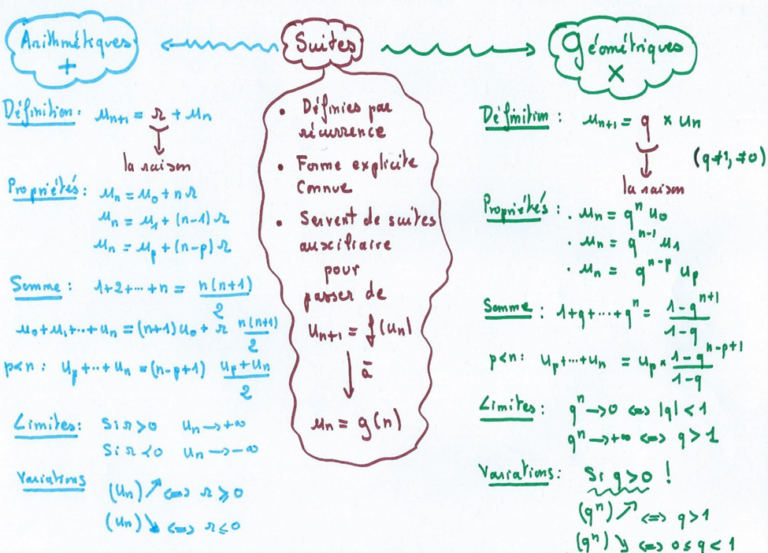 Arithmétiques
+
Définition : uₙ₊₁ = r + uₙ
la raison
Propriétés : uₙ = u₀ + n r
uₙ = u₁ + (n-1) r
uₙ = uₚ + (n-p) r
Somme : 1+2+...+n = n(n+1)/2
u₀+u₁+...+uₙ = (n+1)u₀ + r n(n+1)/2
p<n : uₚ+...+uₙ = (n-p+1) (uₚ+uₙ)/2
Limites : Si r>0 uₙ → +∞
Si r<0 uₙ → -∞
Variations
(uₙ) ↗ ⟺ r ⩾ 0
(uₙ) ↘ ⟺ r ⩽ 0
Suites
• Définies par
récurrence
• Forme explicite
Connue
• Servent de suites
auxiliaire
pour
passer de
uₙ₊₁ = f(uₙ)
à
uₙ = g(n)
Géométriques
×
Définition : uₙ₊₁ = q × uₙ
(q≠1, ≠0)
la raison
Propriétés : • uₙ = qⁿ u₀
• uₙ = qⁿ⁻¹ u₁
• uₙ = qⁿ⁻ᵖ uₚ
Somme : 1+q+...+qⁿ = (1-qⁿ⁺¹)/(1-q)
p<n : uₚ+...+uₙ = uₚ × (1-qⁿ⁻ᵖ⁺¹)/(1-q)
Limites : qⁿ → 0 ⟺ |q| < 1
qⁿ → +∞ ⟺ q > 1
Variations : Si q>0 !
(qⁿ) ↗ ⟺ q>1
(qⁿ) ↘ ⟺ 0 ⩽ q < 1